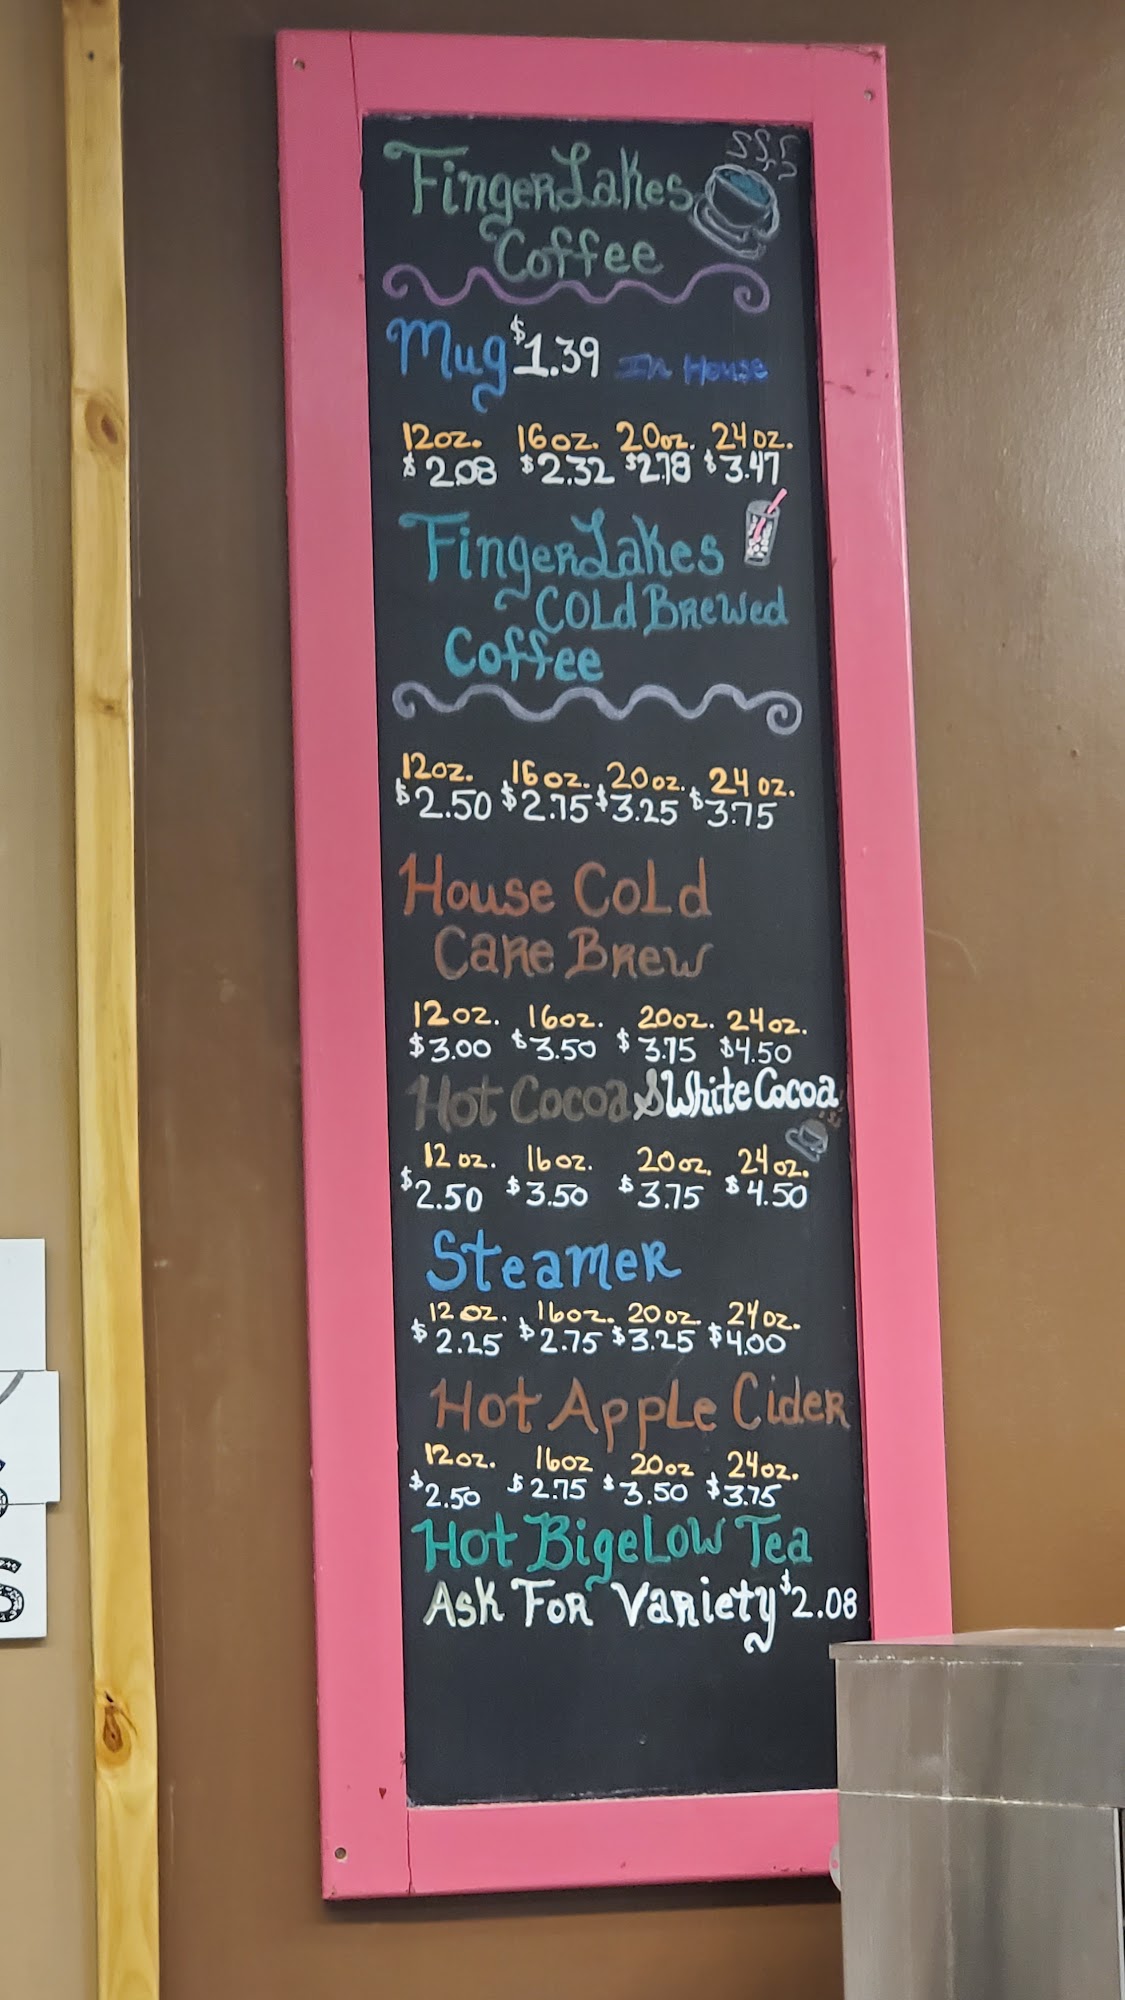 FingerLakes
Coffee
Mug $1.39 In House
12oz. 16oz. 20oz. 24oz.
$2.08 $2.32 $2.78 $3.47
FingerLakes
Cold Brewed
Coffee
12oz. 16oz. 20oz. 24oz.
$2.50 $2.75 $3.25 $3.75
House Cold
Care Brew
12oz. 16oz. 20oz. 24oz.
$3.00 $3.50 $3.75 $4.50
Hot Cocoa & White Cocoa
12oz. 16oz. 20oz. 24oz.
$2.50 $3.50 $3.75 $4.50
Steamer
12oz. 16oz. 20oz. 24oz.
$2.25 $2.75 $3.25 $4.00
Hot Apple Cider
12oz. 16oz 20oz 24oz.
$2.50 $2.75 $3.50 $3.75
Hot Bigelow Tea
Ask For Variety $2.08